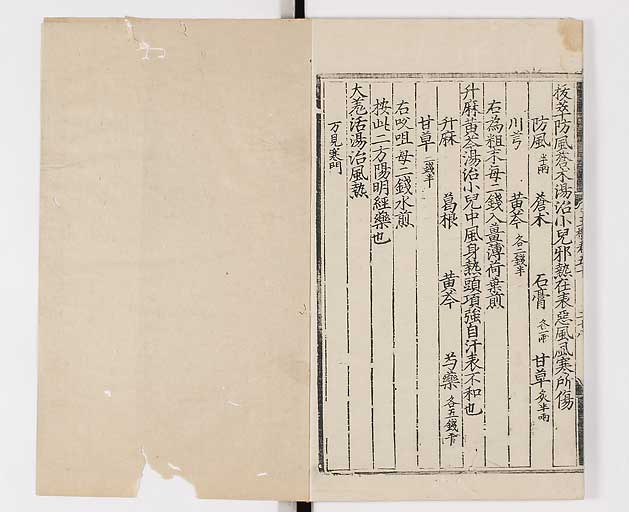 拔萃防風蒼朮湯治小兒邪熱在表惡風風寒所傷
防風半兩 蒼朮 石膏各一兩 甘草炙半兩
川芎 黄芩各二錢半
右為粗末每二錢入薑薄荷葉煎
升麻黄芩湯治小兒中風身熱頭項強自汗表不和也
升麻 葛根 黄芩 芍藥各五錢
甘草二錢半
右㕮咀每二錢水煎
按此二方陽明經藥也
大羗活湯治風熱
方見寒門